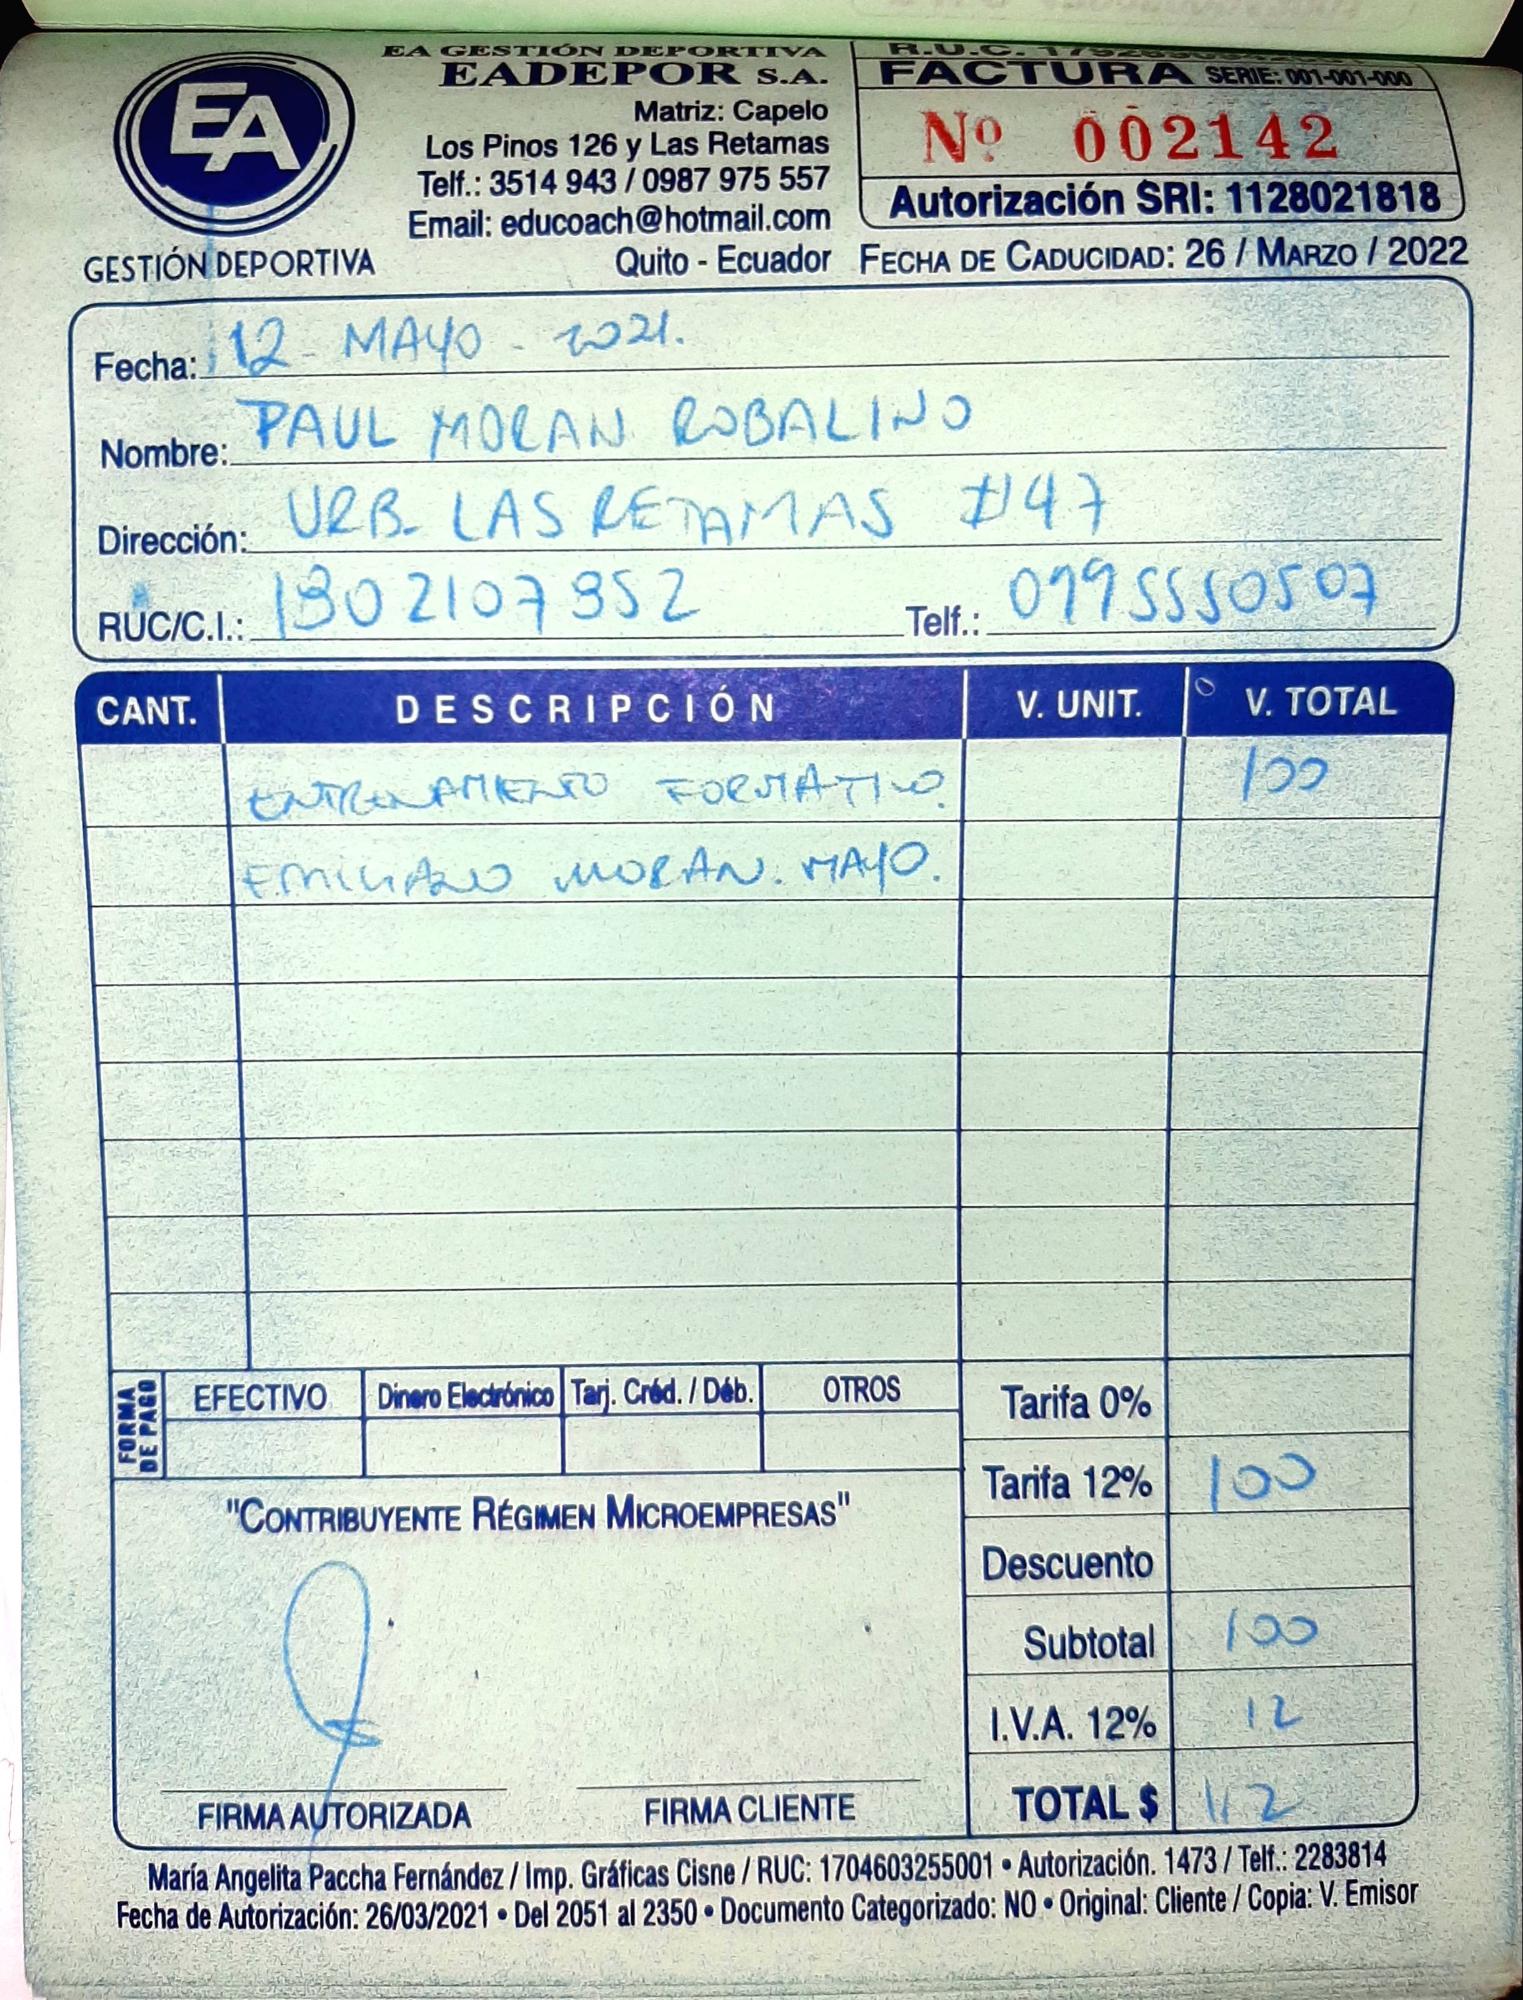 EA GESTIÓN DEPORTIVA
EADEPOR S.A.
Matriz: Capelo
Los Pinos 126 y Las Retamas
Telf.: 3514 943 / 0987 975 557
Email: educoach@hotmail.com
Quito - Ecuador
EA
GESTIÓN DEPORTIVA
R.U.C.
FACTURA SERIE: 001-001-000
Nº 002142
Autorización SRI: 1128021818
FECHA DE CADUCIDAD: 26 / MARZO / 2022
Fecha: 12 - MAYO - 2021.
Nombre: PAUL MORAN ROBALINO
Dirección: URB. LAS RETAMAS #47
RUC/C.I.: 1302107352 Telf.: 0995550507
CANT. DESCRIPCIÓN V. UNIT. V. TOTAL
ENTRENAMIENTO FORMATIVO. 100
EMILIANO MORAN. MAYO.
FORMA DE PAGO
EFECTIVO Dinero Electrónico Tarj. Créd. / Déb. OTROS
Tarifa 0%
Tarifa 12% 100
"CONTRIBUYENTE RÉGIMEN MICROEMPRESAS"
Descuento
Subtotal 100
I.V.A. 12% 12
TOTAL $ 112
FIRMA AUTORIZADA FIRMA CLIENTE
María Angelita Paccha Fernández / Imp. Gráficas Cisne / RUC: 1704603255001 • Autorización. 1473 / Telf.: 2283814
Fecha de Autorización: 26/03/2021 • Del 2051 al 2350 • Documento Categorizado: NO • Original: Cliente / Copia: V. Emisor